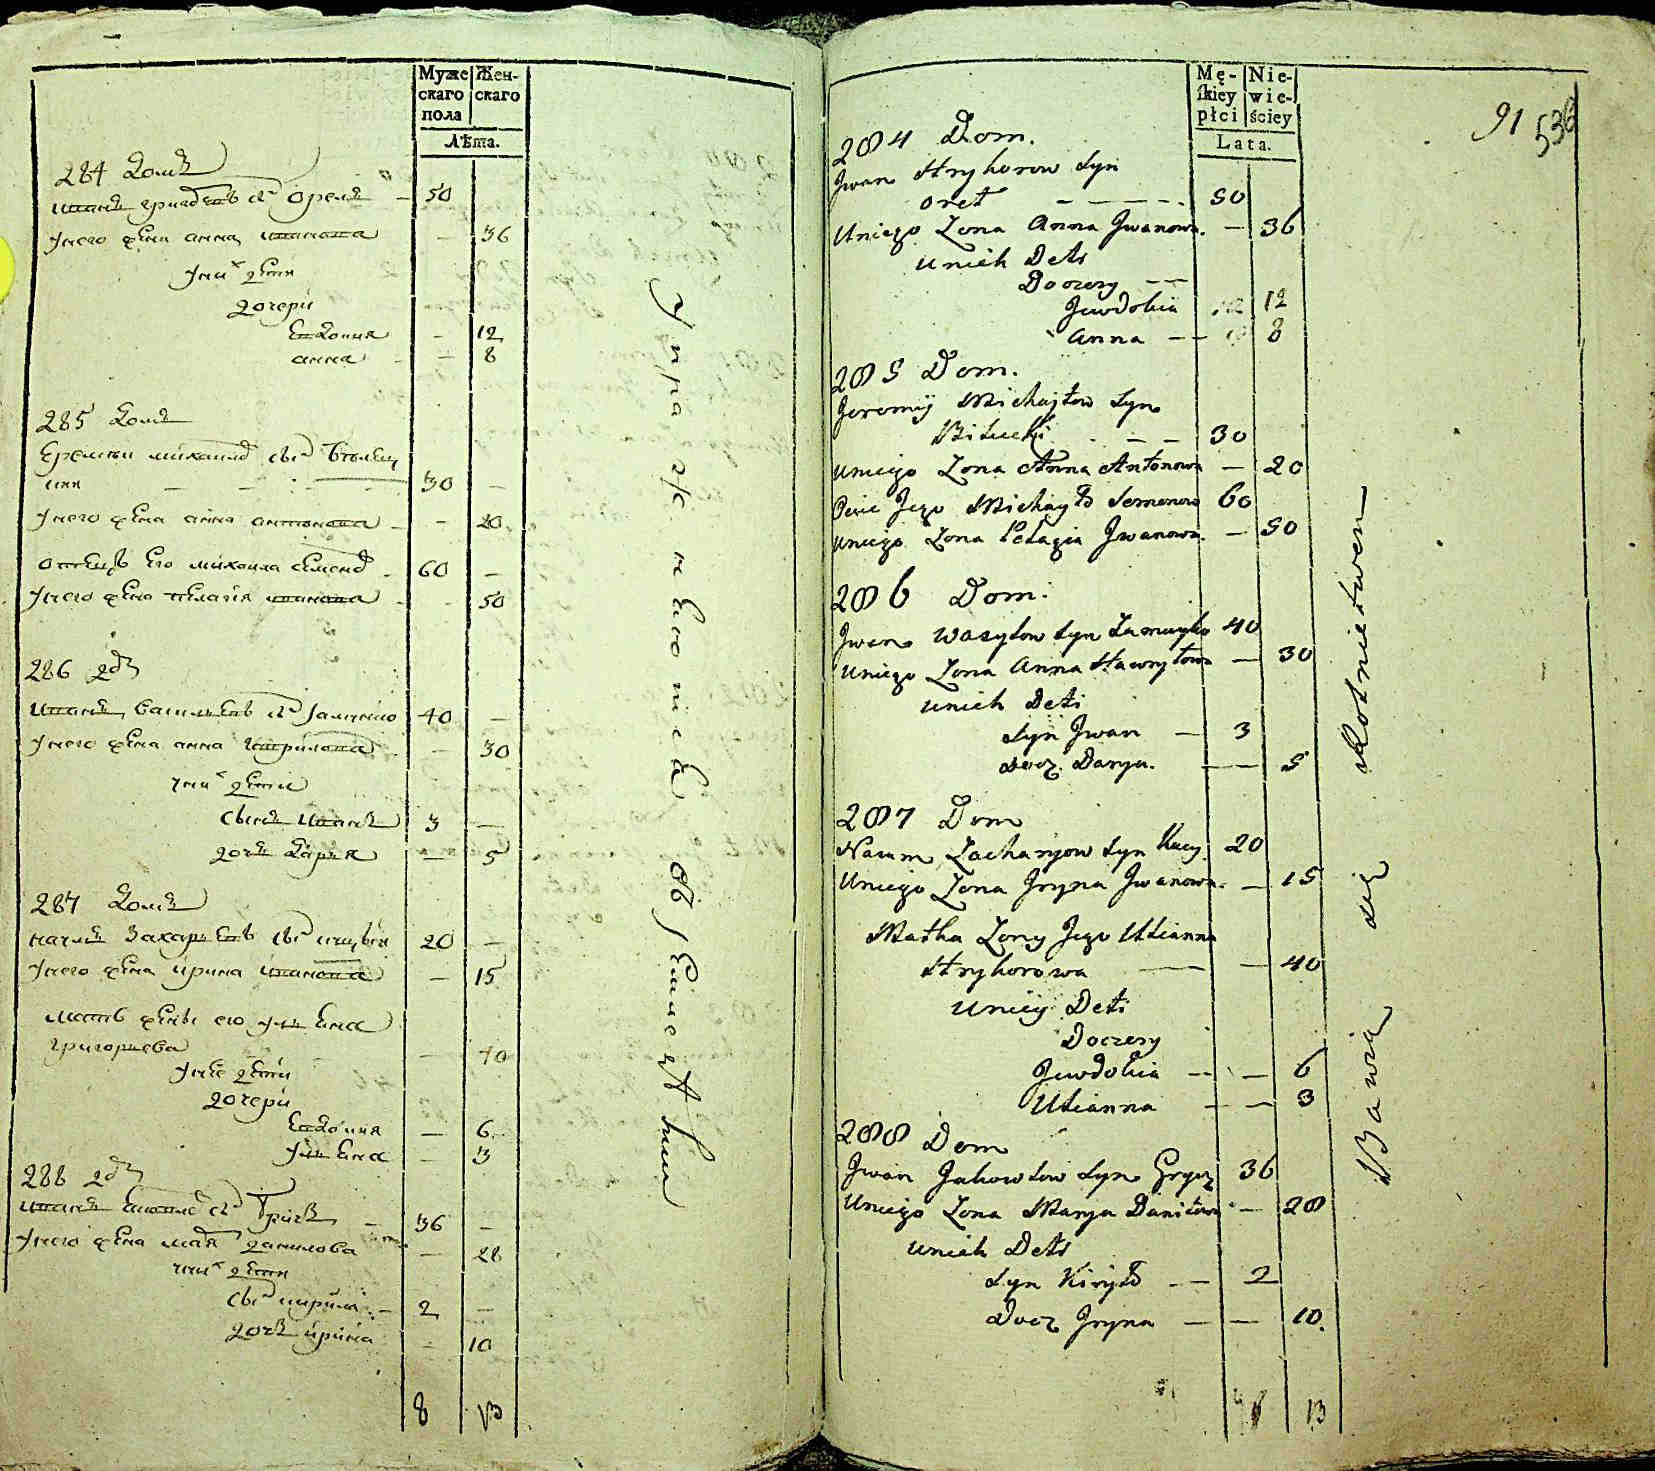 Муже
скаго
пола
Жен-
скаго
Лѣта.
284 домъ
иванъ григорьевъ сы͏нъ орелъ — 50
унего жена анна иванова — 36
уних дети
дочери
евдокия — 12
анна — 8
285 домъ
Еремий михайлов сынъ
30 —
унего жена анна антонова — 20
отецъ его михаила семенов 60 —
унего жена пелагия иванова — 50
286 до͏мъ
иванъ васильевъ сынъ 40 —
унего жена анна гаврилова — 30
уних дети
сынъ иванъ 3 —
дочь дарья — 5
287 домъ
наумъ захарьевъ сынъ 20 —
унего жена ирина иванова — 15
мать жены его ульяна
григорьева — 40
унее дети
дочери
евдокия — 6
ульяна — 3
288 домъ
иванъ сынъ Грицъ — 36 —
унего жена данилова — 28
уних дети
сынъ кирила — 2 —
дочь ирина — 10
8 13
упражняютца обземлепашествѣ
Mę-
skiey
płci
Nie-
wie-
ściey
Lata.
91 536
284 Dom.
Jwan Hryhorow Syn
Oreł — — — — 50
Uniego Zona Anna Jwanowa. — 36
Unich Deti
Doczery — —
Jewdokia 12
Anna — — 8
285 Dom.
Jeremij Michajłow Syn
— — 30
Uniego Zona Anna Antonowa — 20
Jego Michayło Semenow 60
Uniego Zona Pelagia Jwanowa. — 50
286 Dom.
Jwan Wasylow Syn 40
Uniego Zona Anna Hawryłowa — 30
Unich Deti
Syn Jwan — 3
Docz. Darya. — — 5
287 Dom
Naum Zacharyow Syn 20
Uniego Zona Jryna Jwanowa. — 15
Matka Zony Jego Ulianna
Hryhorowa — — 40
Uniey Deti
Doczery
Jewdokia — — 6
Ulianna — — 3
288 Dom
Jwan Jakowlow Syn Gryc 36
Uniego Zona Marya Daniłowa — 28
Unich Deti
Syn Kiryło — — 2
Docz Jryna — — 10.
8 13
Bawią się Rolnictwem